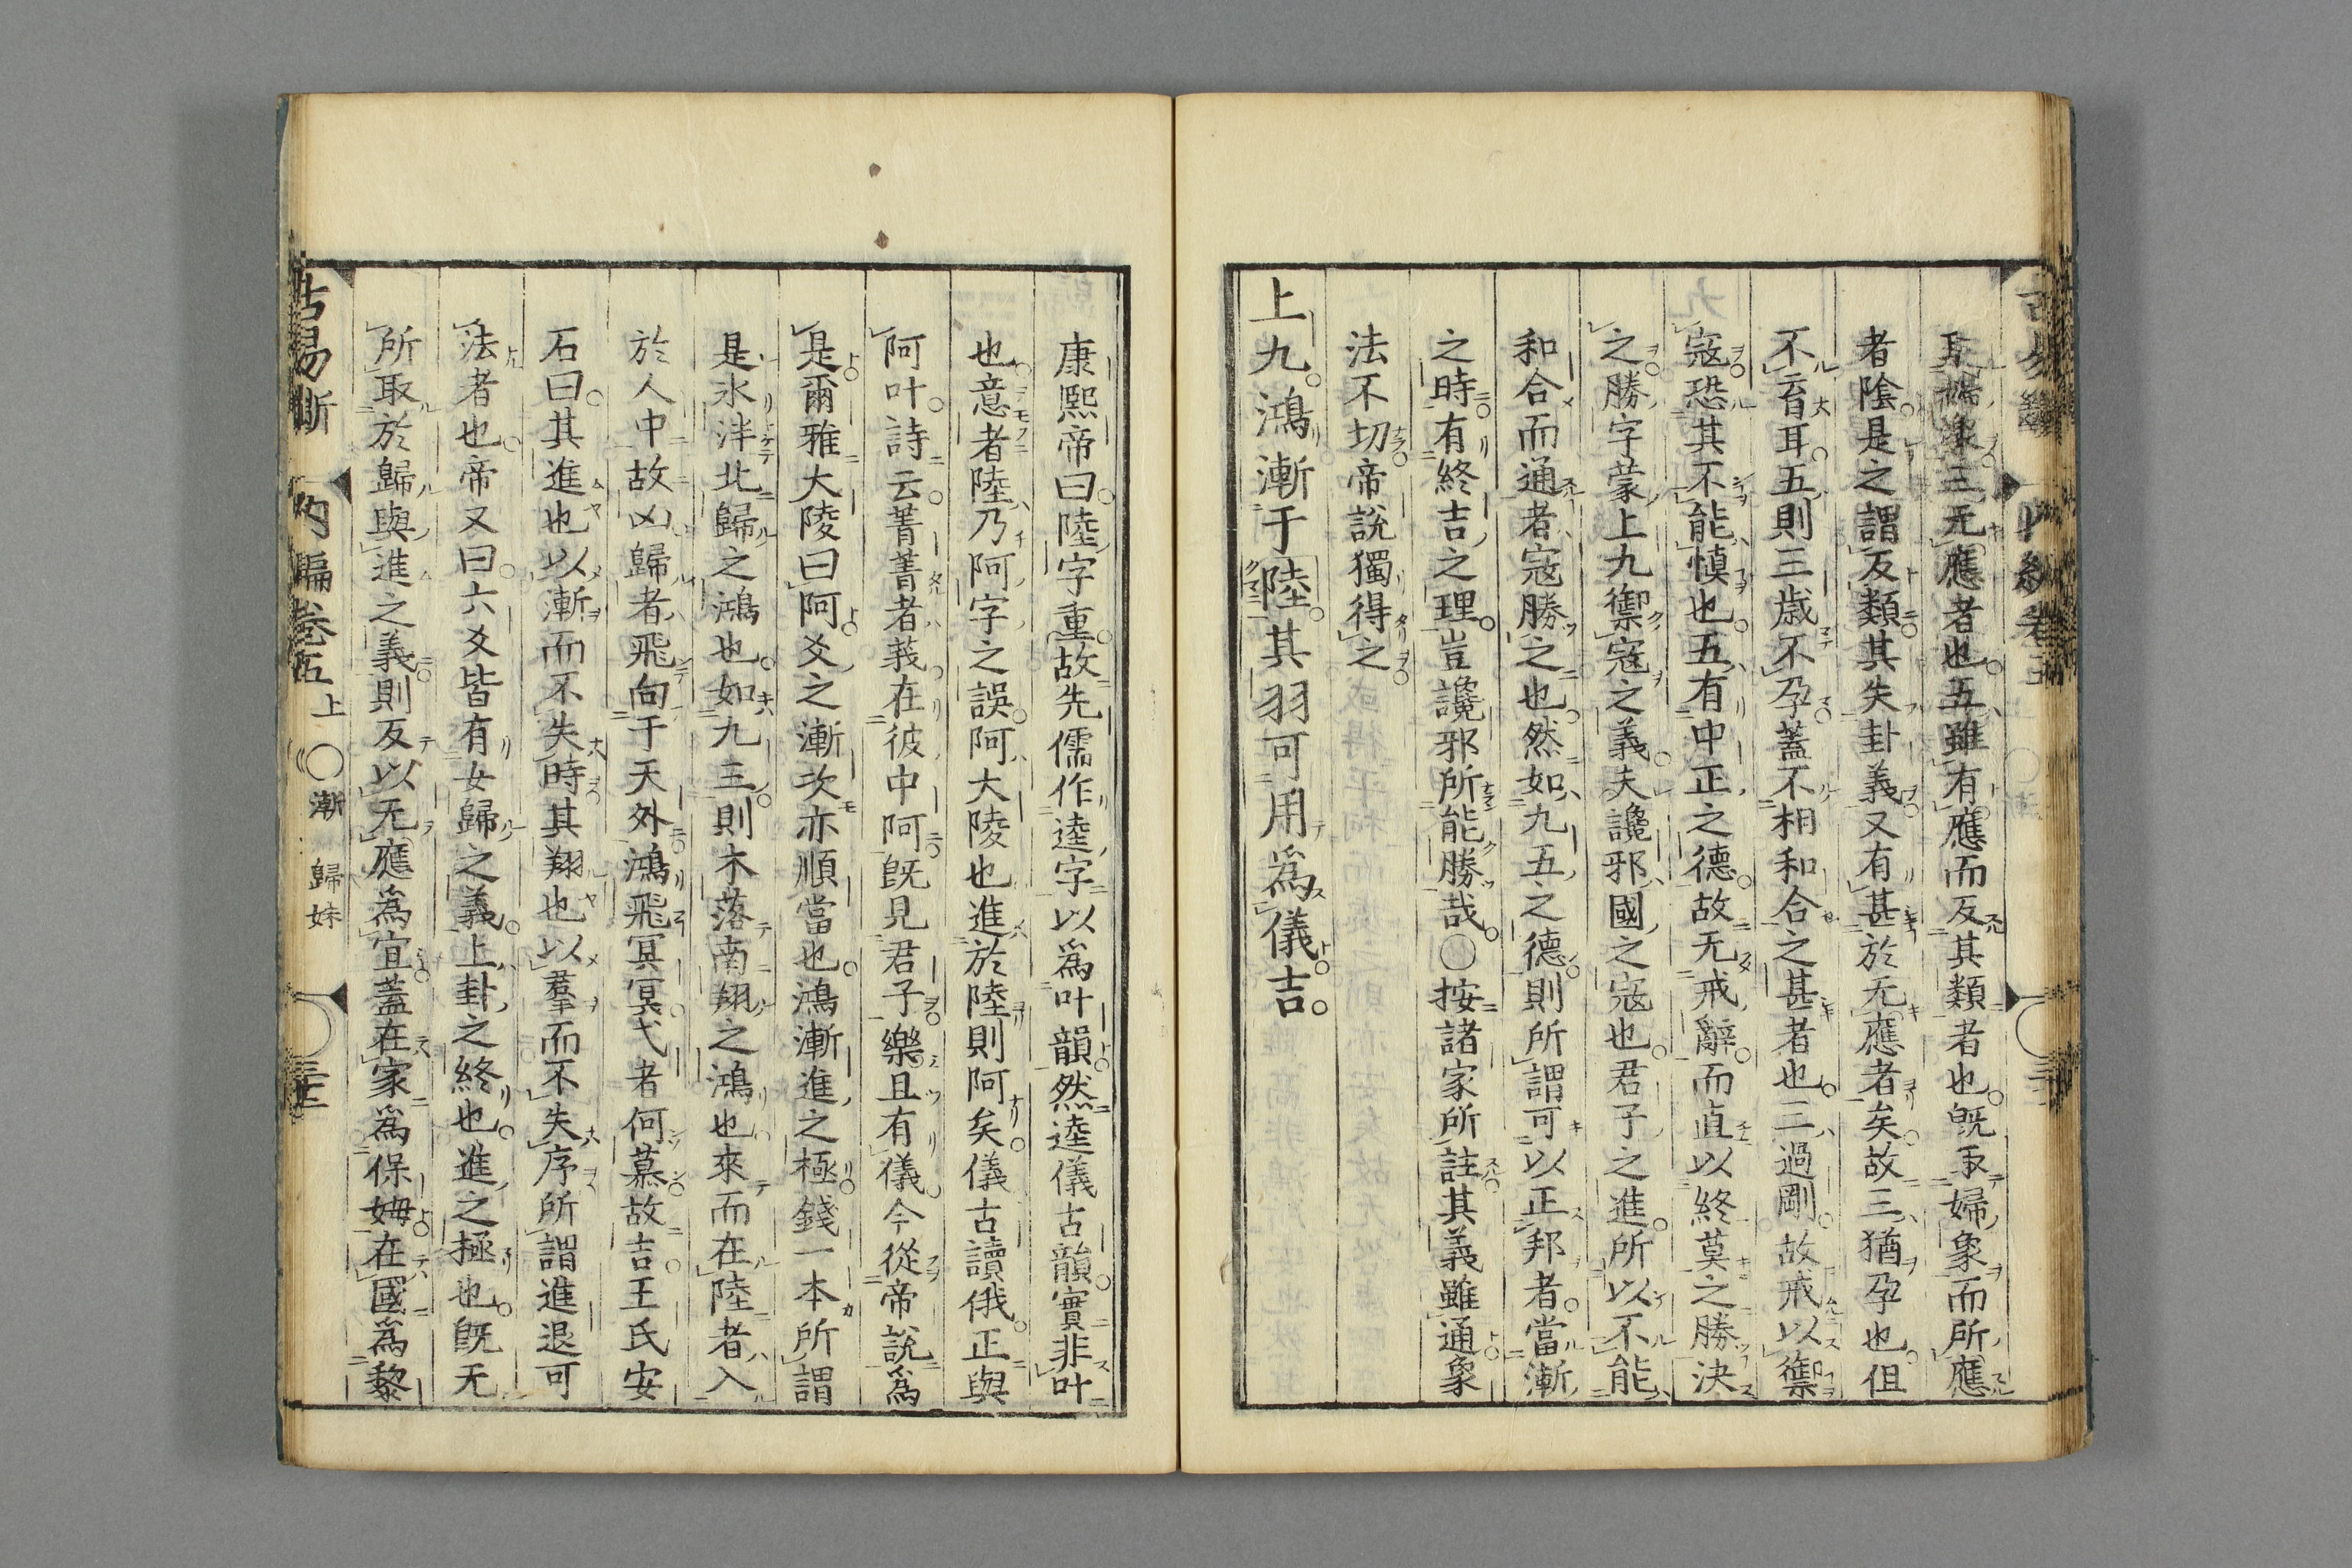 取婦象三无應者也五雖有應而反其類者也既取婦象而所應
者陰是之謂反類其失卦義又有甚於无應者矣故三猶孕也但
不育耳五則三歳不孕蓋不相和合之甚者也三過剛故戒以禦
寇恐其不能慎也五有中正之德故无戒辭而直以終莫之勝決
之勝字蒙上九禦寇之義夫讒邪國之寇也君子之進所以不能
和合而通者寇勝之也然如九五之德則所謂可以正邦者當漸
之時有終吉之理豈讒邪所能勝哉○按諸家所註其義雖通象
法不切帝說獨得之
上九鴻漸于陸其羽可用為儀吉
康熙帝曰陸字重故先儒作逵字以為叶韻然逵儀古韻實非叶
也意者陸乃阿字之誤阿大陵也進於陸則阿矣儀古讀俄正與
阿叶詩云菁菁者莪在彼中阿既見君子樂且有儀今從帝說為
是爾雅大陵曰阿爻之漸次亦順當也鴻漸進之極錢一本所謂
是氷泮北歸之鴻也如九三則木落南翔之鴻也來而在陸者入
於人中故凶歸者飛向于天外鴻飛冥冥弋者何慕故吉王氏安
石曰其進也以漸而不失時其翔也以羣而不失序所謂進退可
法者也帝又曰六爻皆有女歸之義上卦之終也進之極也既无
所取於歸與進之義則反以无應為宜蓋在家為保姆在國為黎
古易斷 内編卷五 上 ○漸 歸妹